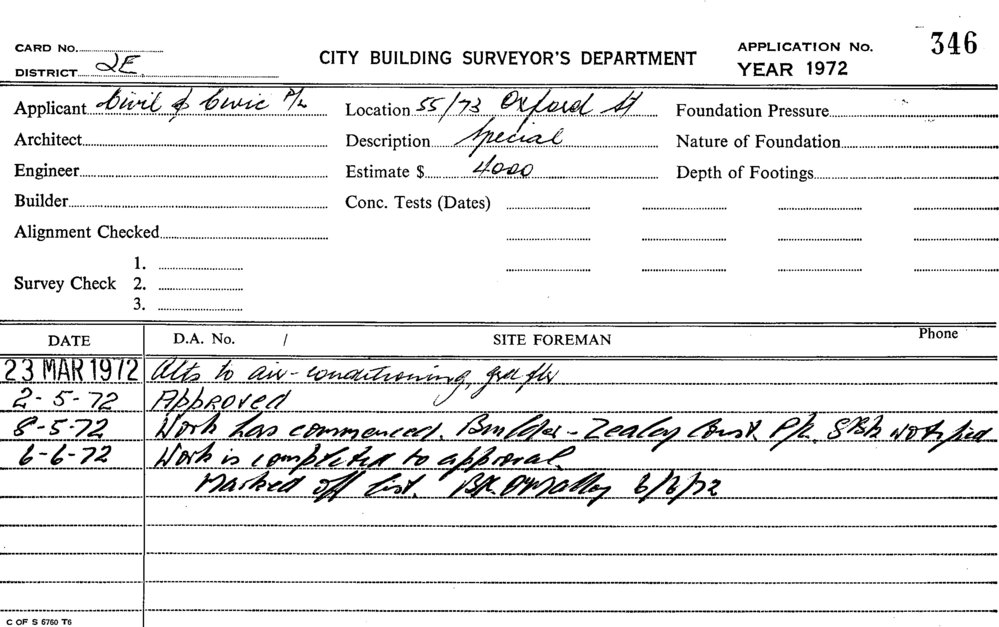 CARD No.
CITY BUILDING SURVEYOR'S DEPARTMENT
APPLICATION No. 346
DISTRICT 2E
YEAR 1972
Applicant Civil & Civic P/L
Location 55/73 Oxford St
Foundation Pressure
Architect
Description Special
Nature of Foundation
Engineer
Estimate $ 4000
Depth of Footings
Builder
Conc. Tests (Dates)
Alignment Checked
Survey Check
1.
2.
3.
DATE
D.A. No. /
SITE FOREMAN
Phone
23 MAR 1972 Alts to air-conditioning, grd flr
2-5-72 Approved
8-5-72 Work has commenced. Builder - Zealey Const. P/L. notified
6-6-72 Work is completed to approval.
Marked off list. B.K. O'Malley 6/6/72
C OF S 5760 T6